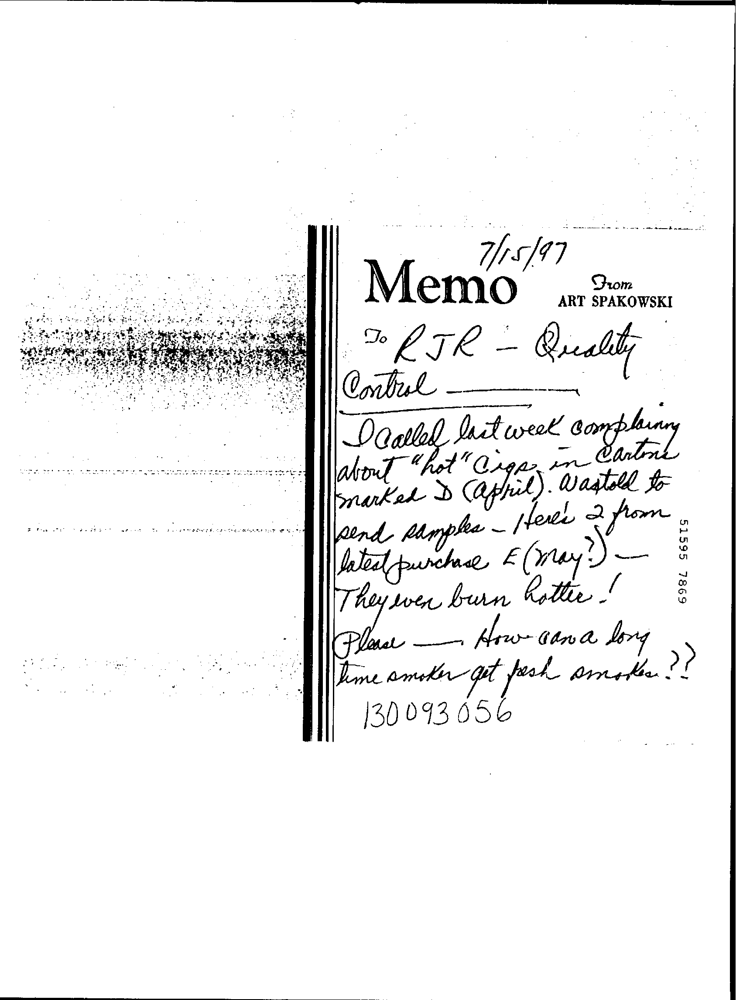 7/15/97
Memo
From
ART SPAKOWSKI
To RJR - Quality
Control
I called last week complaining
about "hot" Cigs, in Cartons
marked D (April). Was told to
send samples - Here's 2 from
latest purchase E (May?) —
They even burn hotter!
Please — How can a long
time smoker get fresh smokes??
130093056
51595 7869